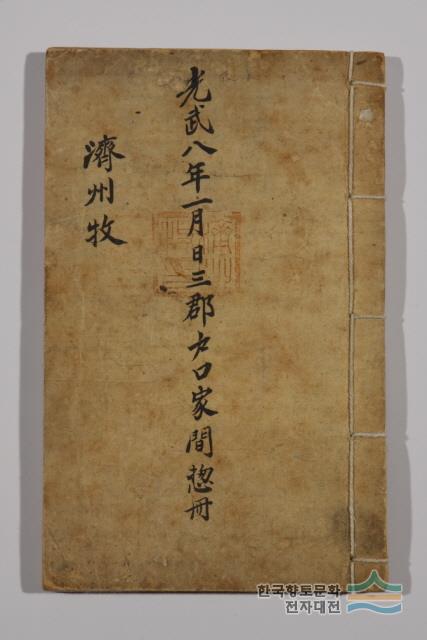 光武八年一月日三郡戶口家間摠冊
濟州牧
한국향토문화
전자대전